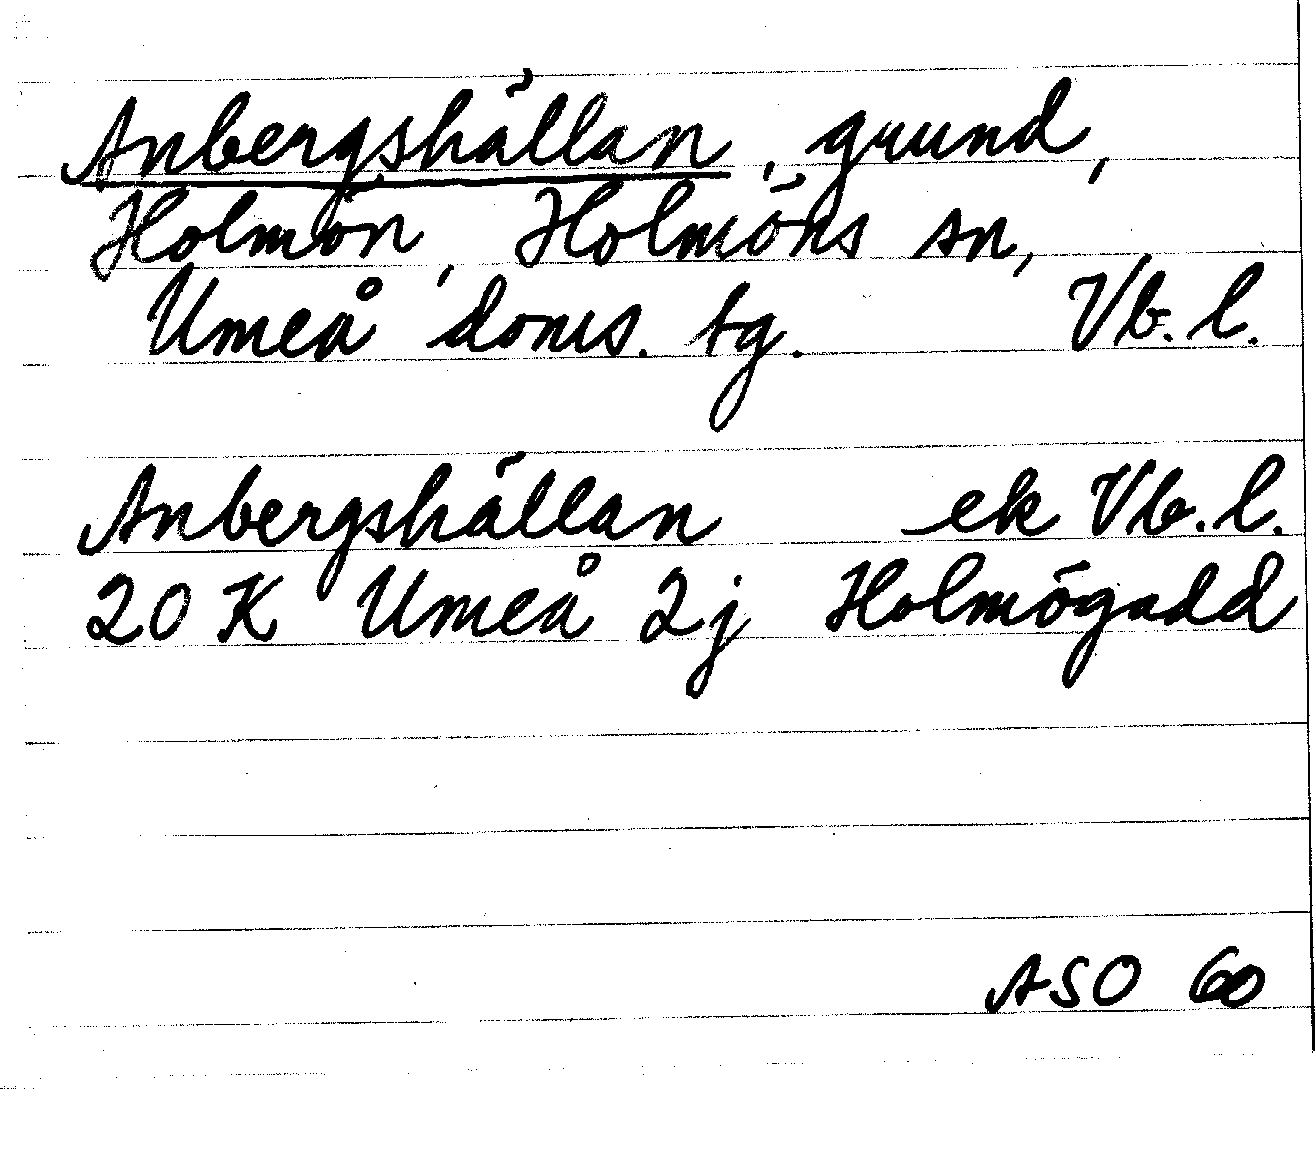 Anbergshällan, grund,
Holmön, Holmöns sn,
Umeå doms. tg. Vb. l.
Anbergshällan ek Vb. l.
20 K Umeå 2j Holmögadd
ASO 60